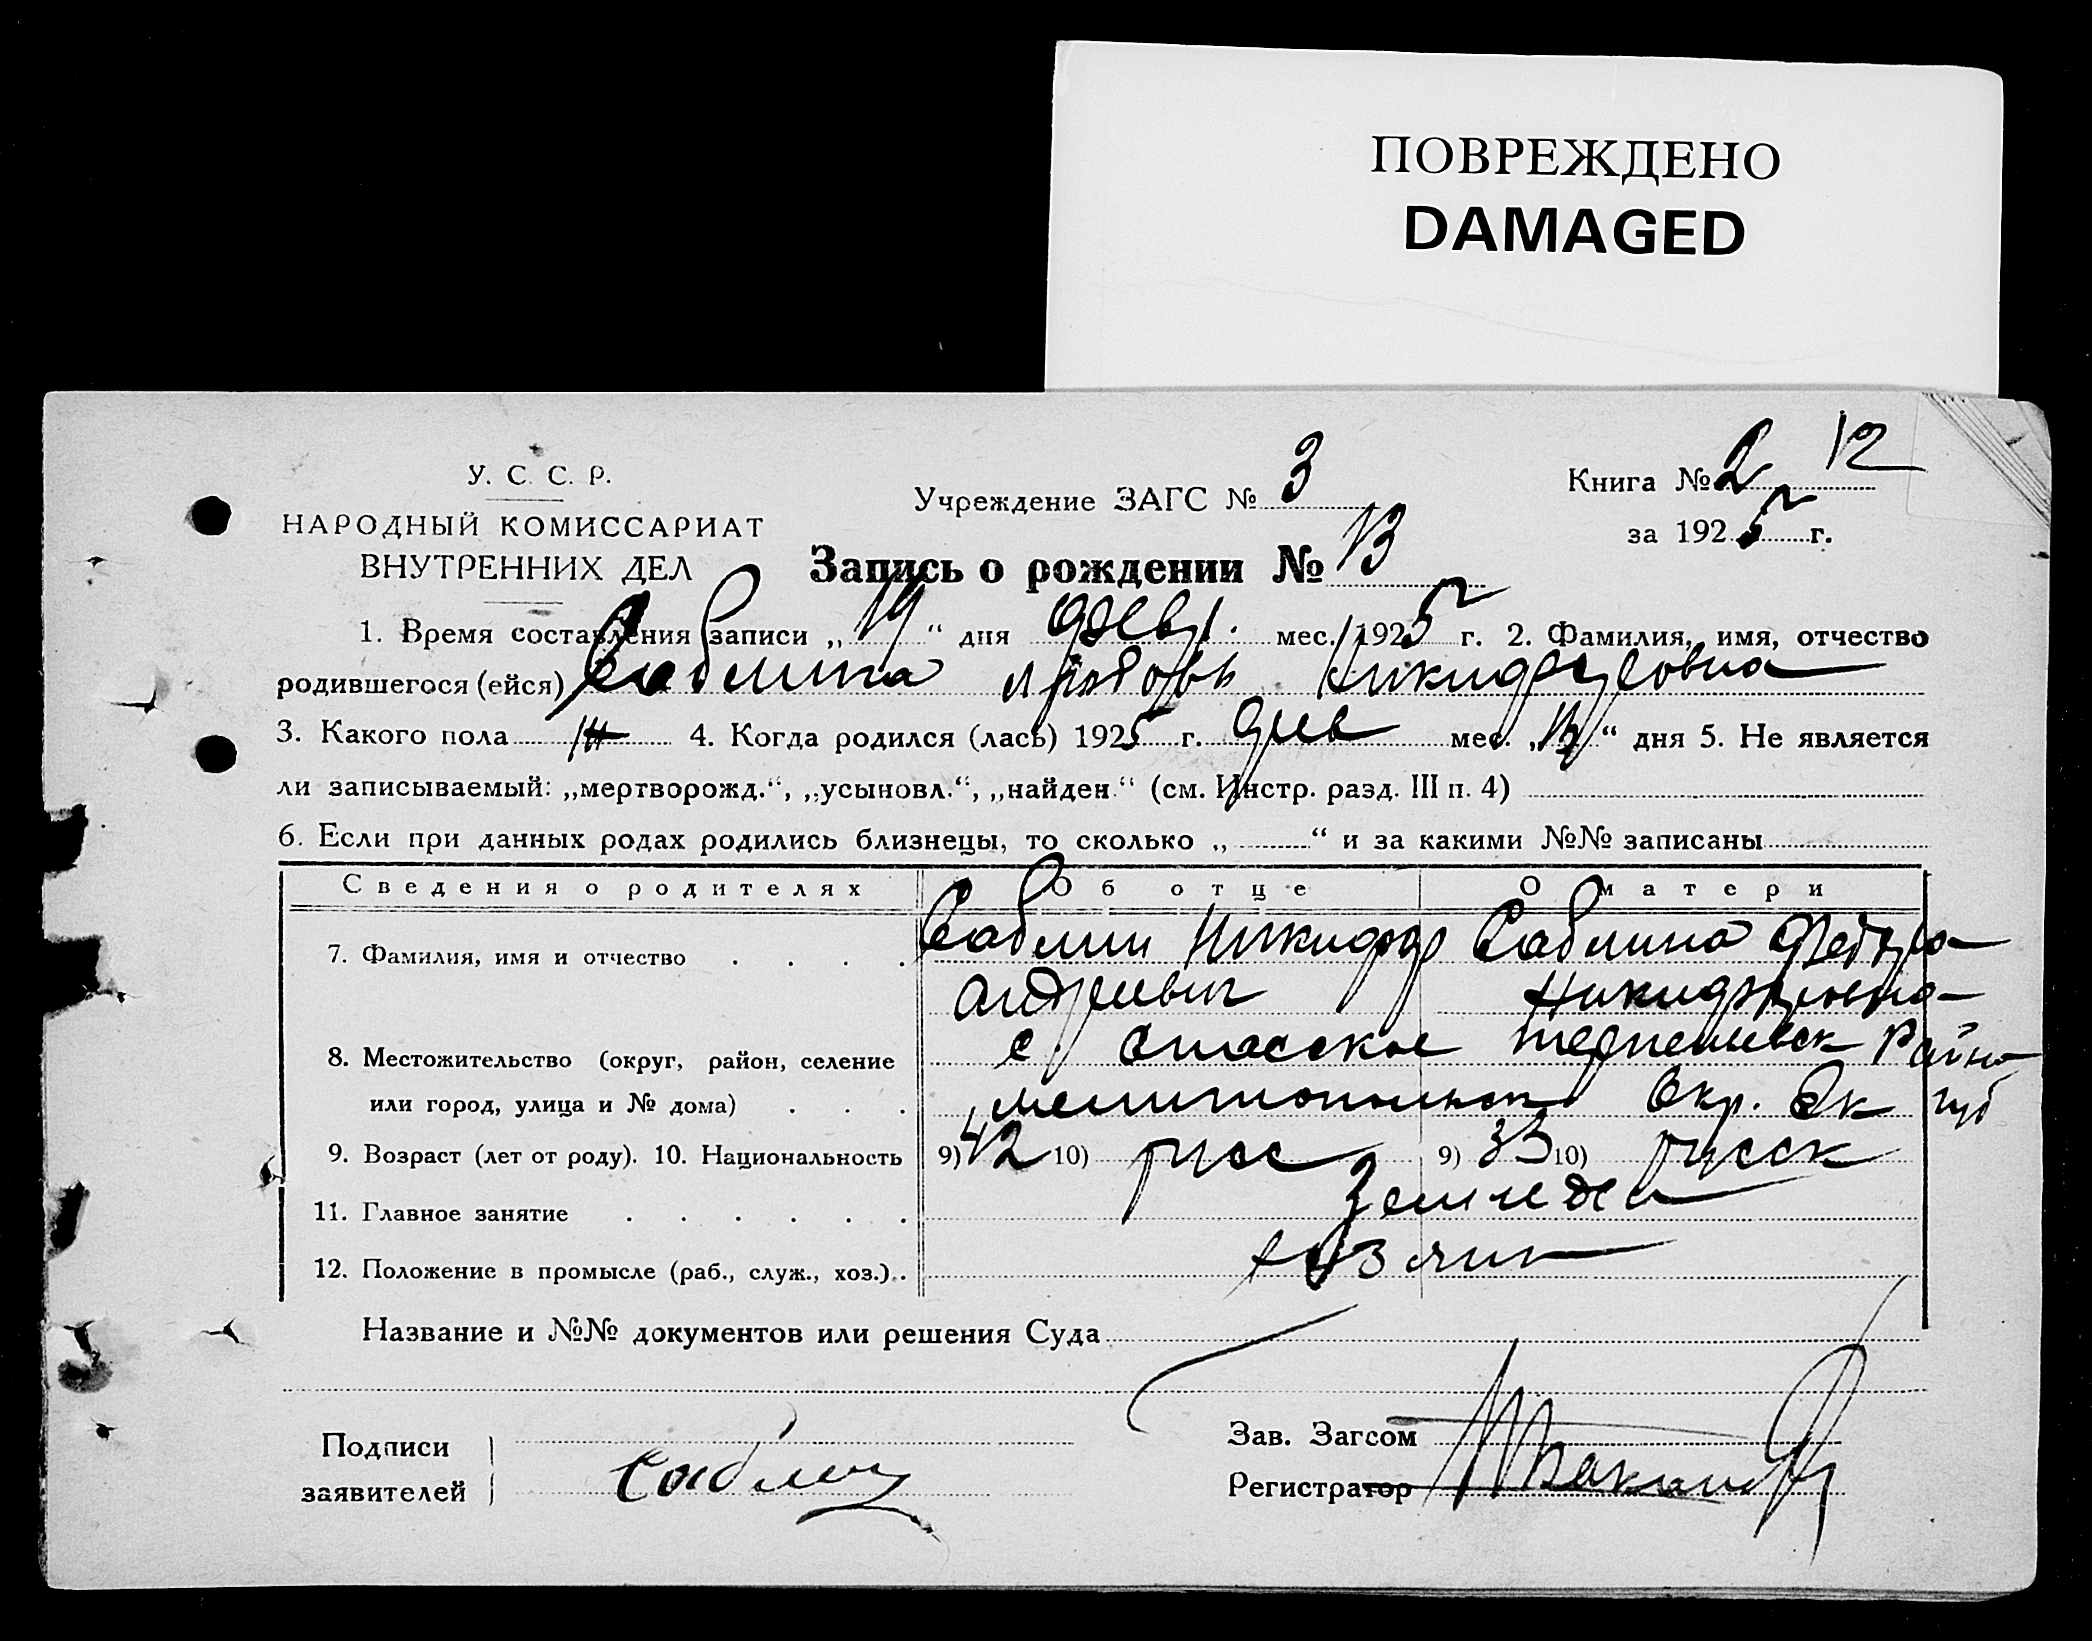 ПОВРЕЖДЕНО
DAMAGED
У. С. С. Р.
НАРОДНЫЙ КОМИССАРИАТ
ВНУТРЕННИХ ДЕЛ
Учреждение ЗАГС № 3
Книга № 2 12
за 1925 г.
Запись о рождении № 13
1. Время составления записи „19“ дня февр. мес. 1925 г. 2. Фамилия, имя, отчество
родившегося (ейся) Саблина Любовь Никифоровна
3. Какого пола ж 4. Когда родился (лась) 1925 г. фев мес. „13“ дня 5. Не является
ли записываемый: „мертворожд.“, „усыновл.“, „найден.“ (см. Инстр. разд. III п. 4)
6. Если при данных родах родились близнецы, то сколько „ “ и за какими №№ записаны
Сведения о родителях Об отце О матери
7. Фамилия, имя и отчество Саблин Никифор Саблина Федора
Андреевич Никифоровна
8. Местожительство (округ, район, селение с. Спасское Терпеневск Район
или город, улица и № дома) мелитопольск Окр. Ек губ
9. Возраст (лет от роду). 10. Национальность 9) 42 10) русс 9) 33 10) русск
11. Главное занятие Земледел
12. Положение в промысле (раб., служ., хоз.) хозяин
Название и №№ документов или решения Суда
Подписи
заявителей Саблин
Зав. Загсом
Регистратор